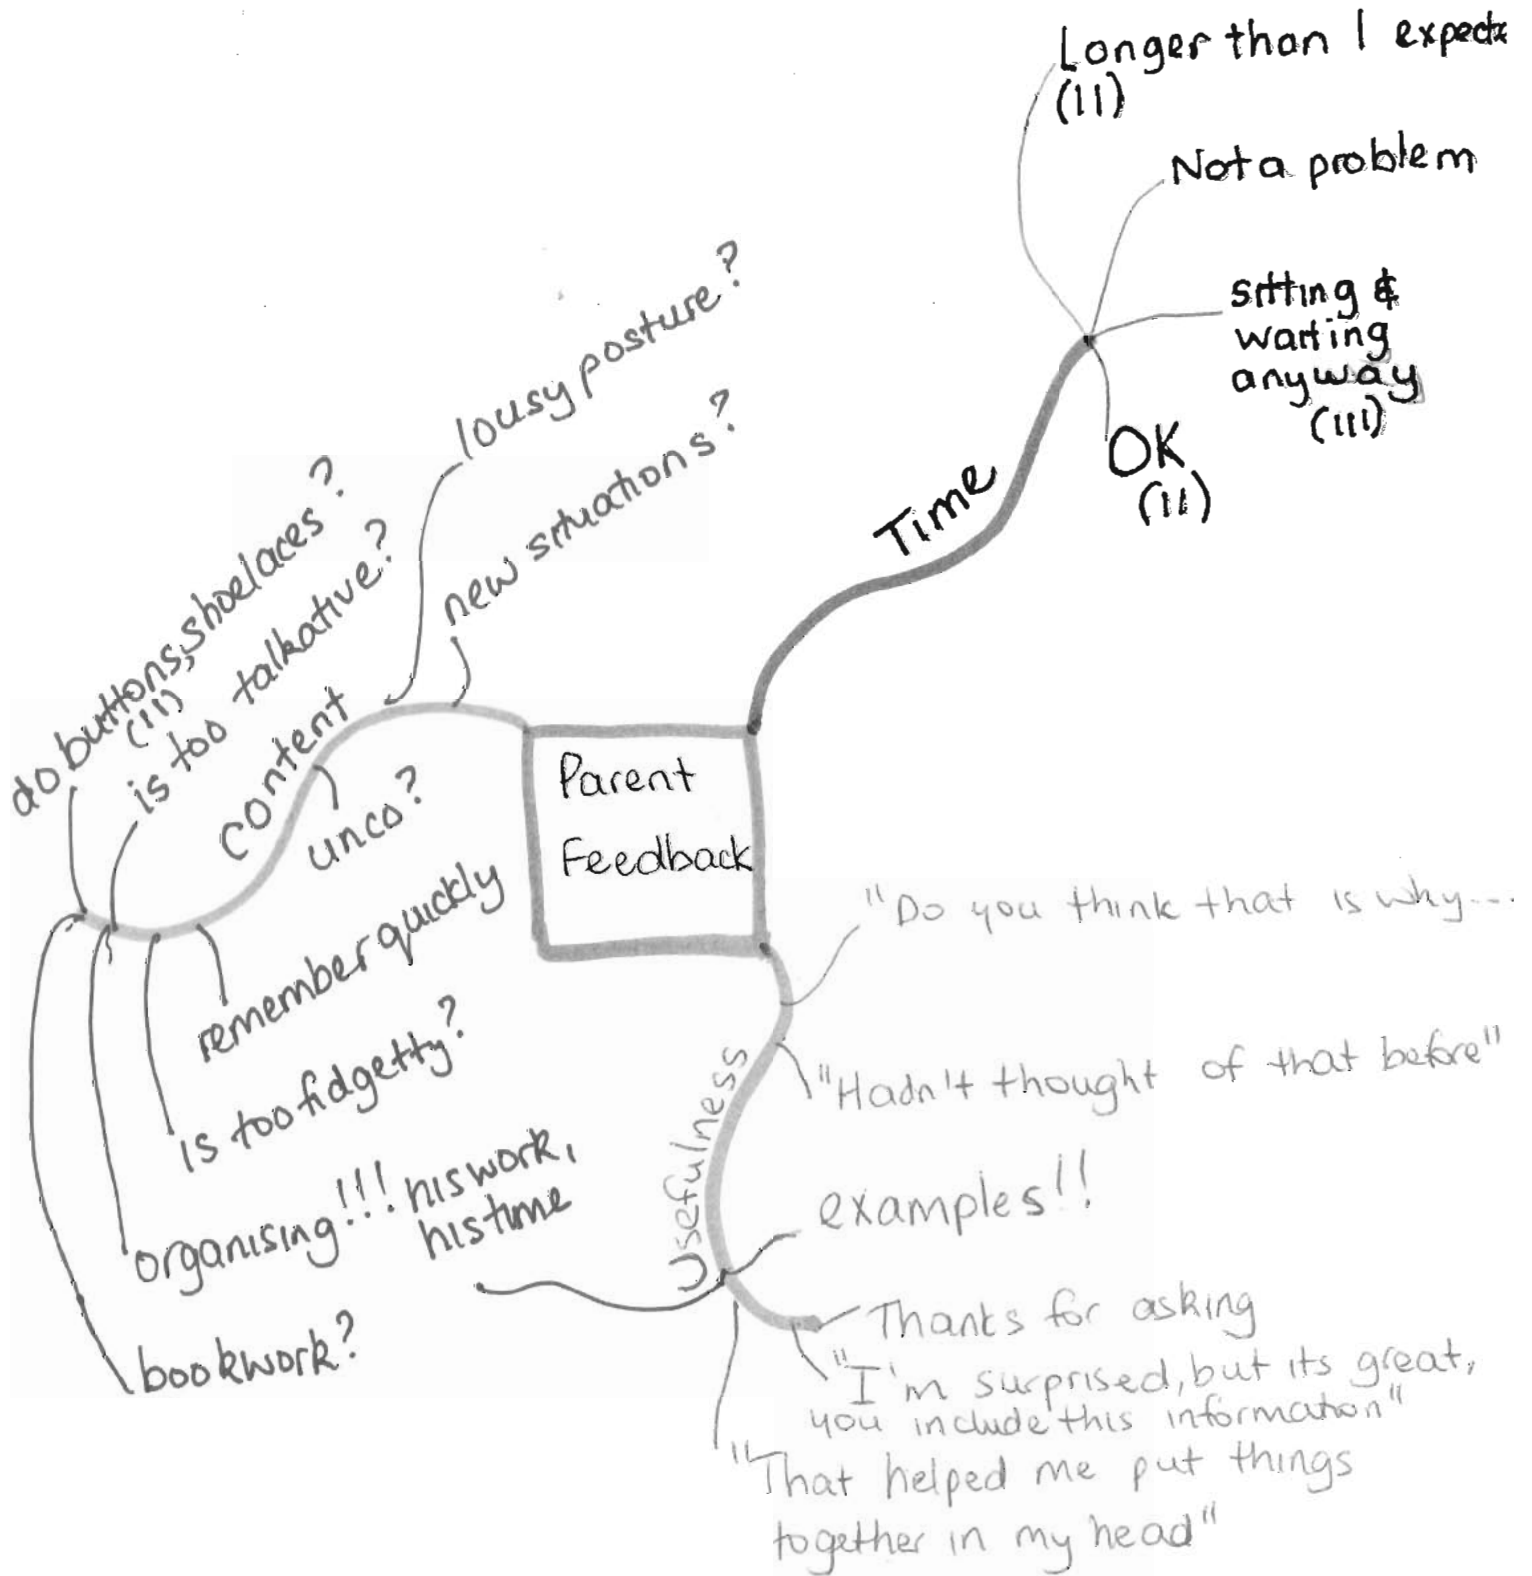 Longer than I expect
(II)
Not a problem
sitting &
waiting
anyway
(III)
OK
(II)
Time
lousy posture?
new situations?
do buttons, shoelaces?
(II)
is too talkative?
content
unco?
remember quickly
is too fidgetty?
organising!!! his work,
his time
bookwork?
Parent
Feedback
"Do you think that is why...
"Hadn't thought of that before"
Usefulness
examples!!
Thanks for asking
"I'm surprised, but its great,
you include this information"
"That helped me put things
together in my head"